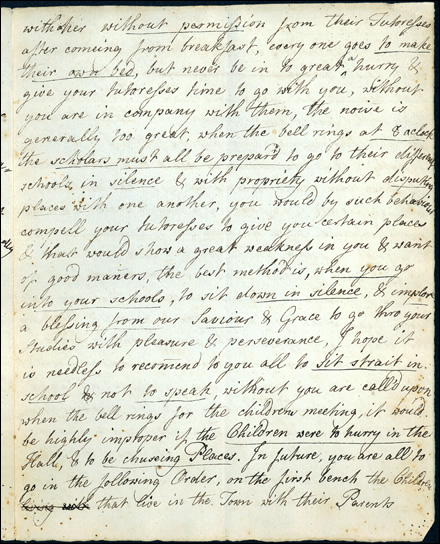 without permission from their Tutoresses
after comeing from breakfast, every one goes to make
their own bed, but never be in to great a hurry &
give your tutoresses time to go with you, without
you are in company with them, the noise is
generally too great, when the bell rings at 8 aclock
the scholars must all be prepar'd to go to their different
schools, in silence & with propriety without disputing
places with one another, you would by such behaviour
compell your tutoresses to give you certain places
& that would show a great weakness in you & want
of good mañers, the best method is, when you go
into your schools, to sit down in silence, & implore
a blessing from our Saviour & Grace to go thro your
Studies with pleasure & perseverance, I hope it
is needless to recom̄end to you all to sit strait in
school & not to speak without you are call'd upon
when the bell rings for the childrens meeting, it would
be highly improper if the Children were to hurry in the
Hall, & to be chuseing Places. In future, you are all to
go in the following Order, on the first bench the Children
that live in the Town with their Parents